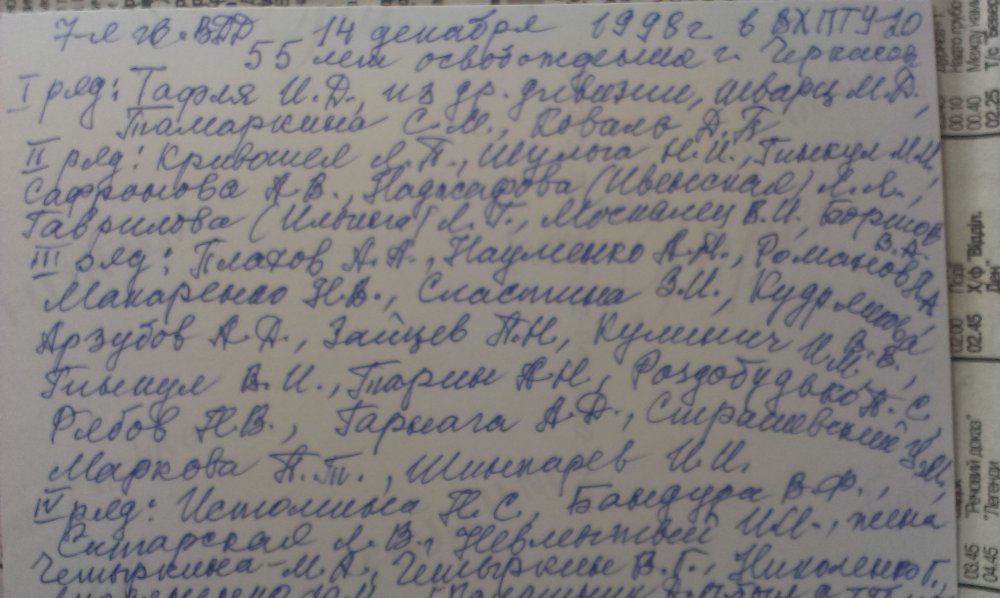 7-я гв. ВДД 14 декабря 1998г в ВХПТУ 20
55 лет освобождения г. Черкассы
I ряд: Тафля И.Д., из др. дивизии, Шварц М.Д.,
Тамаркина С.М., Коваль Д.П.
II ряд: Кривошея Л.П., Шульга Н.И., Гинкул М.М.,
Сафронова А.В., Наджафова (Ивенская) Л.Я.,
Гаврилова (Ильина) Л.Г., Москалец В.И., Бортков
В.А.
III ряд: Плахов А.А., Науменко А.Н., Романов Я.А.
Макаренко Н.В., Сластина З.И., Кудрякова
В.В.,
Арзубов А.Д., Зайцев П.Н., Кулинич И.М.
Гинкул В.И., Тарин А.Н., Роздобудько А.С.
Рябов Н.В., Гарнага А.Д., Страшевский Ц.М.,
Маркова П.Т., Шинкарев И.И.
IV ряд: Истомина Н.С. Бандура В.Ф.,
Ситарская Л.В., Невлютый И.И., жена
Четыркина М.А., Четыркин В.Г., Николенко Г.,
02.25 Т/с
00.40
00.10
02.00
02.45 Х/ф "Відділ.
03.45 "Речовий доказ"
04.45 "Легенди